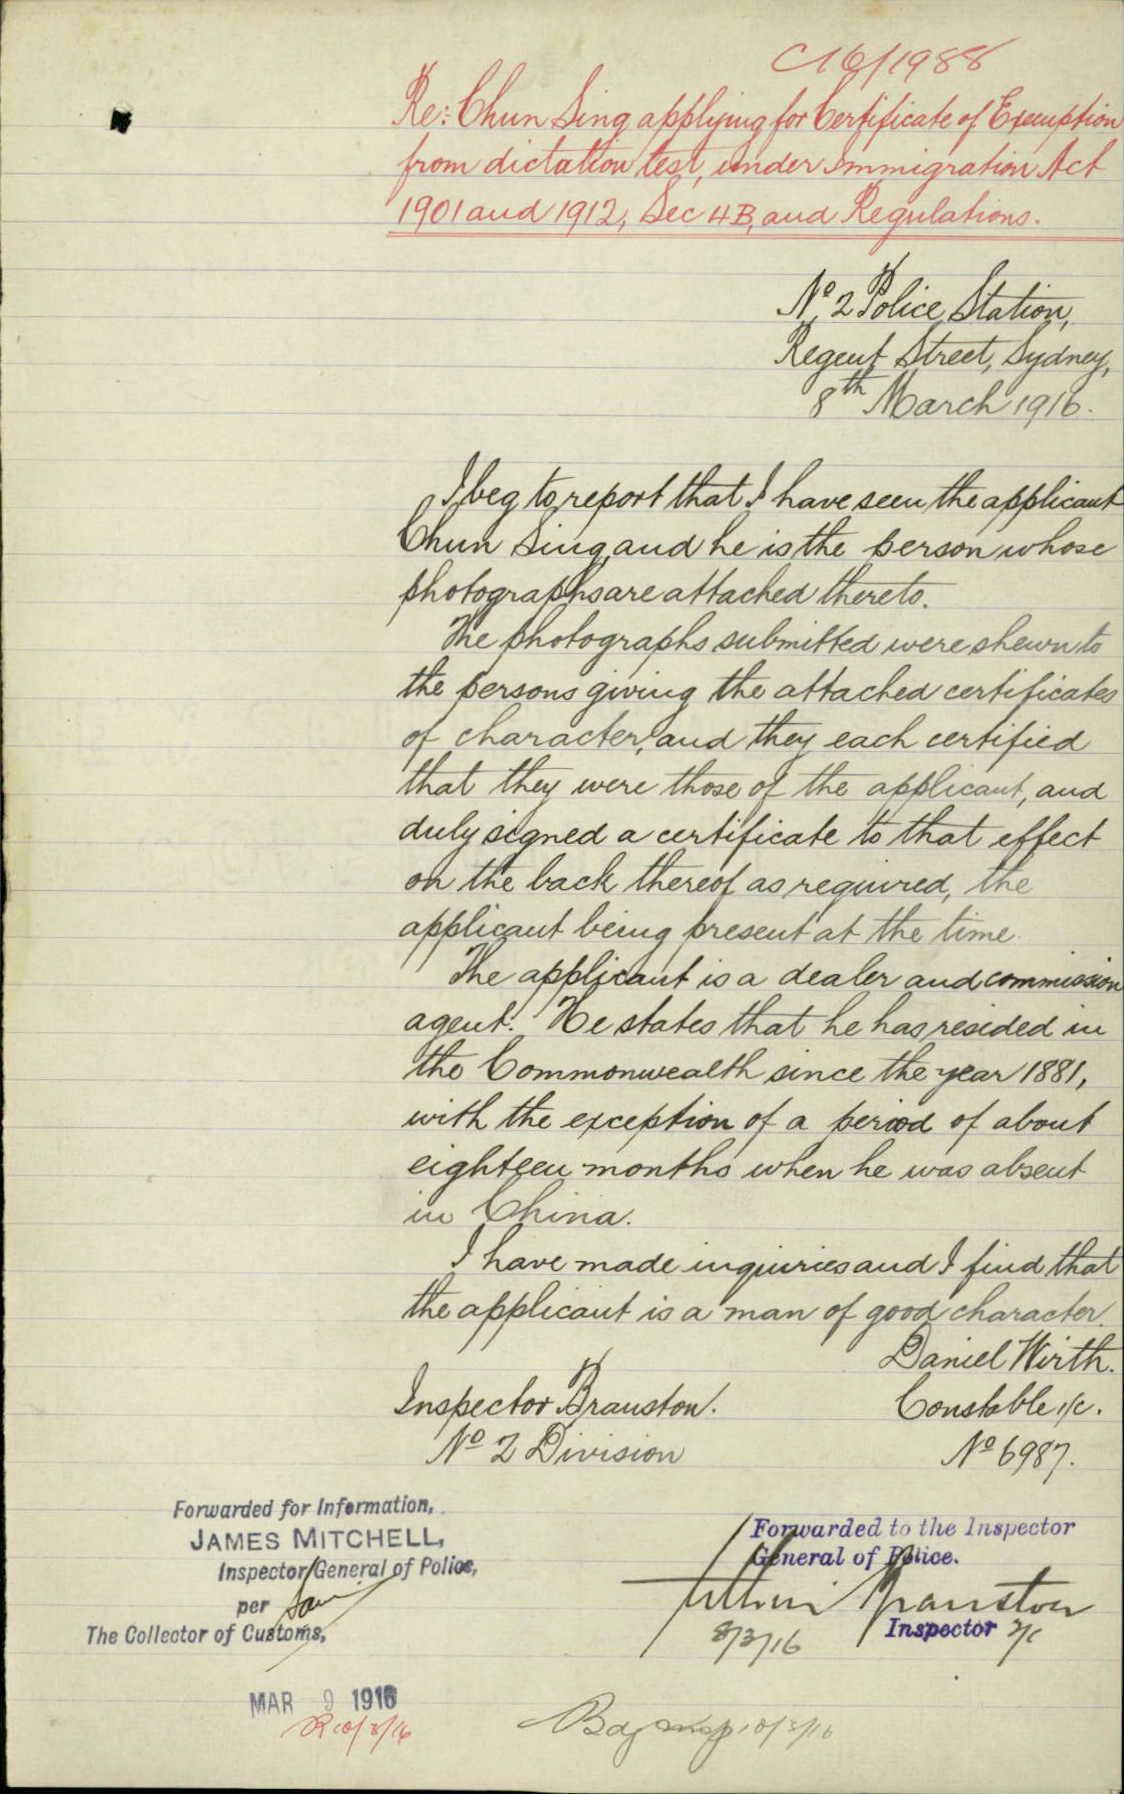 C16/1988
Re: Chun Sing applying for Certificate of Exemption
from dictation test, under Immigration Act
1901 and 1912, Sec 4B, and Regulations.
No 2 Police Station,
Regent Street, Sydney,
8th March 1916.
I beg to report that I have seen the applicant
Chun Sing, and he is the person whose
photographs are attached thereto.
The photographs submitted were shewn to
the persons giving the attached certificates
of character, and they each certified
that they were those of the applicant, and
duly signed a certificate to that effect
on the back thereof as required, the
applicant being present at the time.
The applicant is a dealer and commission
agent. He states that he has resided in
the Commonwealth since the year 1881,
with the exception of a period of about
eighteen months when he was absent
in China.
I have made inquiries and I find that
the applicant is a man of good character.
Daniel Wirth.
Constable 1/c.
No 6987.
Inspector Branston.
No 2 Division
Forwarded for Information,
JAMES MITCHELL,
Inspector General of Police,
per
The Collector of Customs,
MAR 9 1916
10/3/16
Forwarded to the Inspector
General of Police.
Branston
Inspector
8/3/16
10/3/16